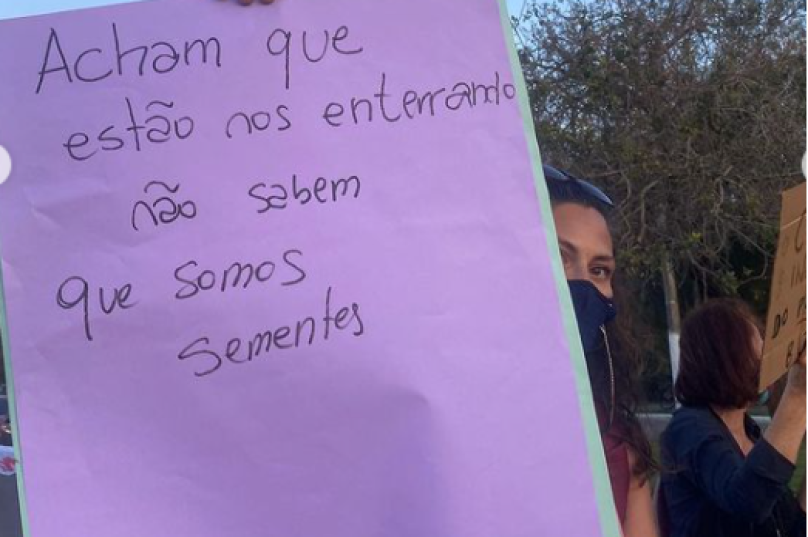 Acham que
estão nos enterrando
não sabem
que somos
sementes
DO